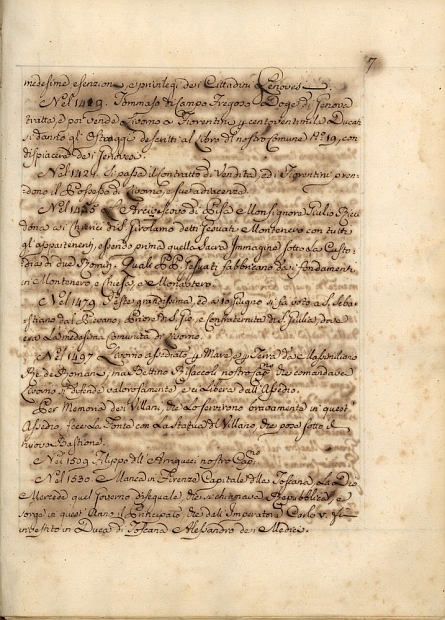 7
medesime esenzioni, e privilegi dei Cittadini Genovesi.
Nel 1419. Tommaso di Campo Fregoso Doge di Genova
tratta, e poi vende Livorno a Fiorentini p cento ventimila Ducati
di Nostro Comune N.º 19, con
dispiacere dei Genovesi.
Nel 1421. Si passa il contratto di Vendita, ed i Fiorentini pren-
dono il Possesso di Livorno, e sue adiacenze.
Nel 1455 L'Arcivescovo di Pisa Monsignore Giulio Ricc
dona ai Cherici di S. Girolamo detti Gesuati Montenero con tutti
gl'appartenenti, essendo prima quella Sacra Immagine sotto la Custo-
dia di due Romiti. Quali PP. Gesuati fabbricano dai fondamenti
in Montenero e Chiesa, e Monastero.
Nel 1479 Peste grandissima, ed a 10 Giugno si fa voto a S. Seba-
stiano dal Piovano, Priore di S. e Confraternita di S. Giulia, dove
era la medesima Comunità di Livorno.
Nel 1497 Livorno assediato p Mare e p Terra da Massimiliano
Rè de Romani, ma Bettino Ricasoli nostro Cap.no che comandava
Livorno si difende valorosamente, e si libera dall'Assedio.
Per Memoria dei Villani, che lo servirono bravamente in quest'
Assedio, fece la Fonte con la Statua del Villano, che pose sotto il
nuovo Bastione.
Nel 1509 Filippo dell'Arrigucci nostro Cap.no
Nel 1530 Manca in Firenze Capitale della Toscana la Dio
Mercede quel Governo diseguale che si chiamava Repubblica, e
sorge in quest'Anno il Principato, che dall'Imperatore Carlo V. fù
investito in Duca di Toscana Alessandro dei Medici.